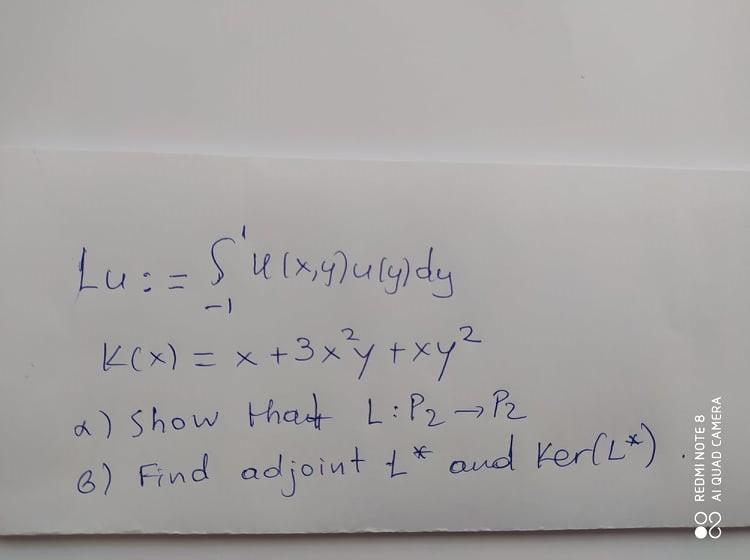 Lu := ∫₋₁¹ K(x,y)u(y)dy
K(x) = x + 3x²y + xy²
a) Show that L : P₂ → P₂
б) Find adjoint L* and Ker(L*).
REDMI NOTE 8
AI QUAD CAMERA